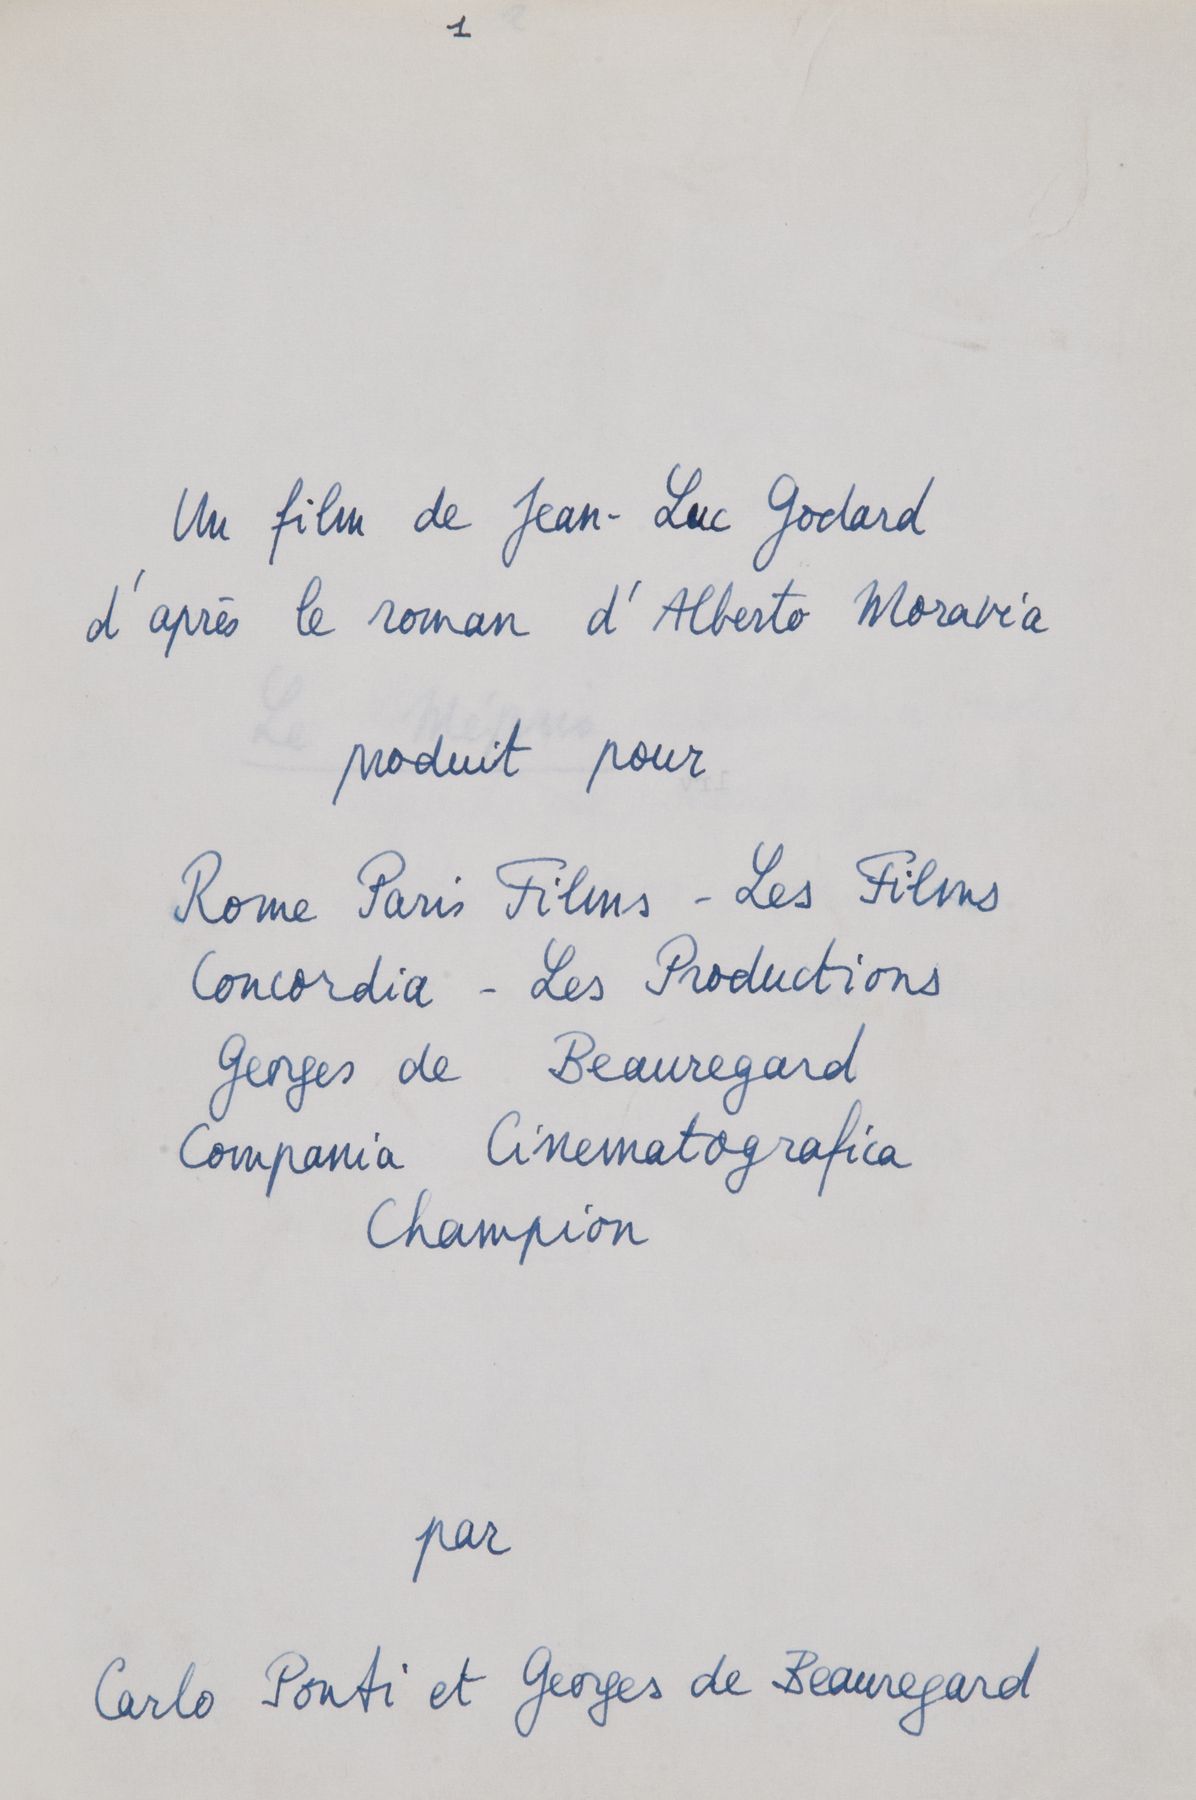 1
Un film de Jean-Luc Godard
d'après le roman d'Alberto Moravia
Le Mépris
produit pour
Rome Paris Films - Les Films
Concordia - Les Productions
Georges de Beauregard
Compania Cinematografica
Champion
par
Carlo Ponti et Georges de Beauregard